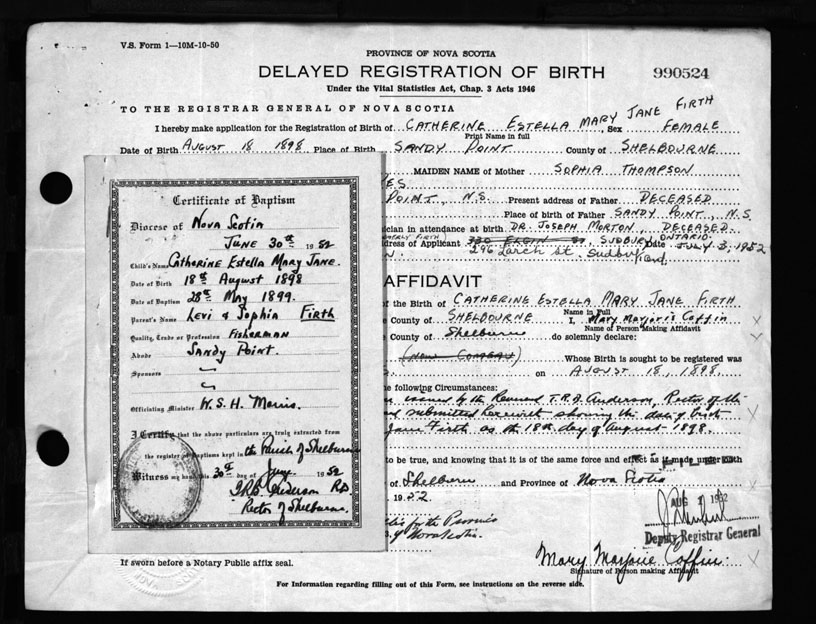 V.S. Form 1—10M-10-50
PROVINCE OF NOVA SCOTIA
DELAYED REGISTRATION OF BIRTH 990524
Under the Vital Statistics Act, Chap. 3 Acts 1946
TO THE REGISTRAR GENERAL OF NOVA SCOTIA
I hereby make application for the Registration of Birth of CATHERINE ESTELLA MARY JANE FIRTH, Sex FEMALE
Print Name in full
Date of Birth AUGUST 18 1898 Place of Birth SANDY POINT County of SHELBOURNE
MAIDEN NAME of Mother SOPHIA THOMPSON
POINT, N.S. Present address of Father DECEASED
Place of birth of Father SANDY POINT, N.S.
ician in attendance at birth DR. JOSEPH MORTON, DECEASED.
dress of Applicant 330 ELGIN ST SUDBURY ONTARIO. Date JULY 3, 1952
296 Larch St. Sudbury Ont.
AFFIDAVIT
of the Birth of CATHERINE ESTELLA MARY JANE FIRTH
Name in Full
County of SHELBOURNE I, Mary Marjorie Coffin
Name of Person Making Affidavit
County of Shelburne do solemnly declare:
Whose Birth is sought to be registered was
on AUGUST 18, 1898.
he following Circumstances:
issued by the Reverend T.R.B. Anderson, Rector of the
submitted herewith showing the date of birth
Jane Firth as the 18th day of August 1898.
to be true, and knowing that it is of the same force and effect as if made under oath
of Shelburne and Province of Nova Scotia
1952
AUG 1952
Deputy Registrar General
for the Province
of Nova Scotia.
Mary Marjorie Coffin
Signature of Person making Affidavit
If sworn before a Notary Public affix seal.
For Information regarding filling out of this Form, see instructions on the reverse side.
Certificate of Baptism
Diocese of Nova Scotia
JUNE 30th 1952
Child's Name Catharine Estella Mary Jane.
Date of Birth 18th August 1898
Date of Baptism 28th May 1899.
Parent's Name Levi & Sophia Firth
Quality, Trade or Profession FISHERMAN
Abode SANDY POINT.
Sponsors
Officiating Minister W.S.H. Morris.
I Certify that the above particulars are truly extracted from
the register of Baptisms kept in the Parish of Shelburne
Witness my hand this 30th day of June 1952
T.R.B. Anderson R.D.
Rector of Shelburne.